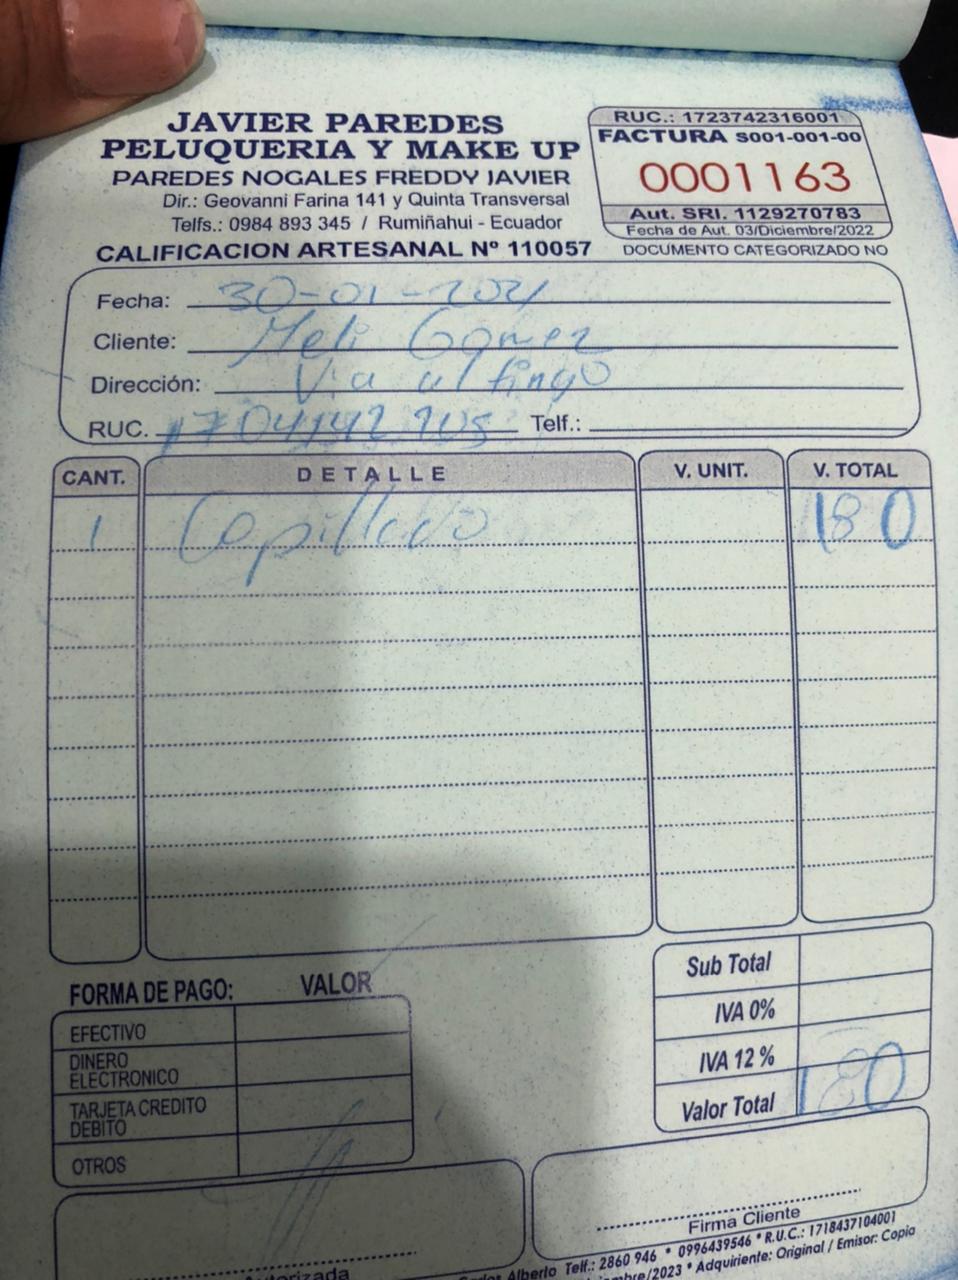 JAVIER PAREDES
PELUQUERIA Y MAKE UP
PAREDES NOGALES FREDDY JAVIER
Dir.: Geovanni Farina 141 y Quinta Transversal
Telfs.: 0984 893 345 / Rumiñahui - Ecuador
CALIFICACION ARTESANAL Nº 110057
RUC.: 1723742316001
FACTURA S001-001-00
0001163
Aut. SRI. 1129270783
Fecha de Aut. 03/Diciembre/2022
DOCUMENTO CATEGORIZADO NO
Fecha: 30-01-
Cliente: Meli Gomez
Dirección: Via al tingo
RUC. Telf.:
CANT. DETALLE V. UNIT. V. TOTAL
1 180
FORMA DE PAGO: VALOR
EFECTIVO
DINERO
ELECTRONICO
TARJETA CREDITO
DEBITO
OTROS
Sub Total
IVA 0%
IVA 12 %
Valor Total 180
Firma Cliente
Alberto Telf.: 2860 946 * 0996439546 * R.U.C.: 1718437104001
/2023 * Adquiriente: Original / Emisor: Copia